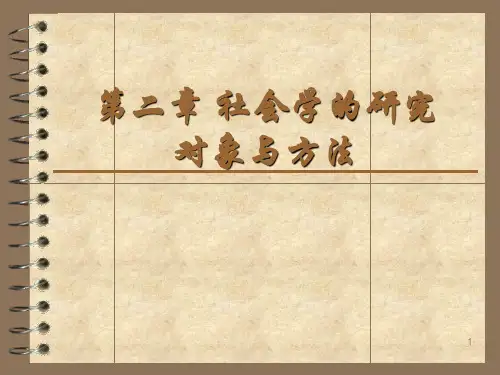 第二章 社会学的研究
对象与方法
1